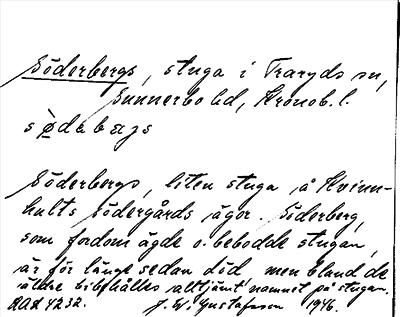 Söderbergs, stuga i Traryds sn,
Sunnerbo hd, Kronob. l.
sǿdabærjs
Söderbergs, liten stuga på Kvinn-
hults södergårds ägor. Söderberg,
som fordom ägde o. bebodde stugan,
är för länge sedan död, men bland de
äldre bibehålles alltjämt namnet på stugan.
RAÄ 4232. J. W. Gustafsson 1946.